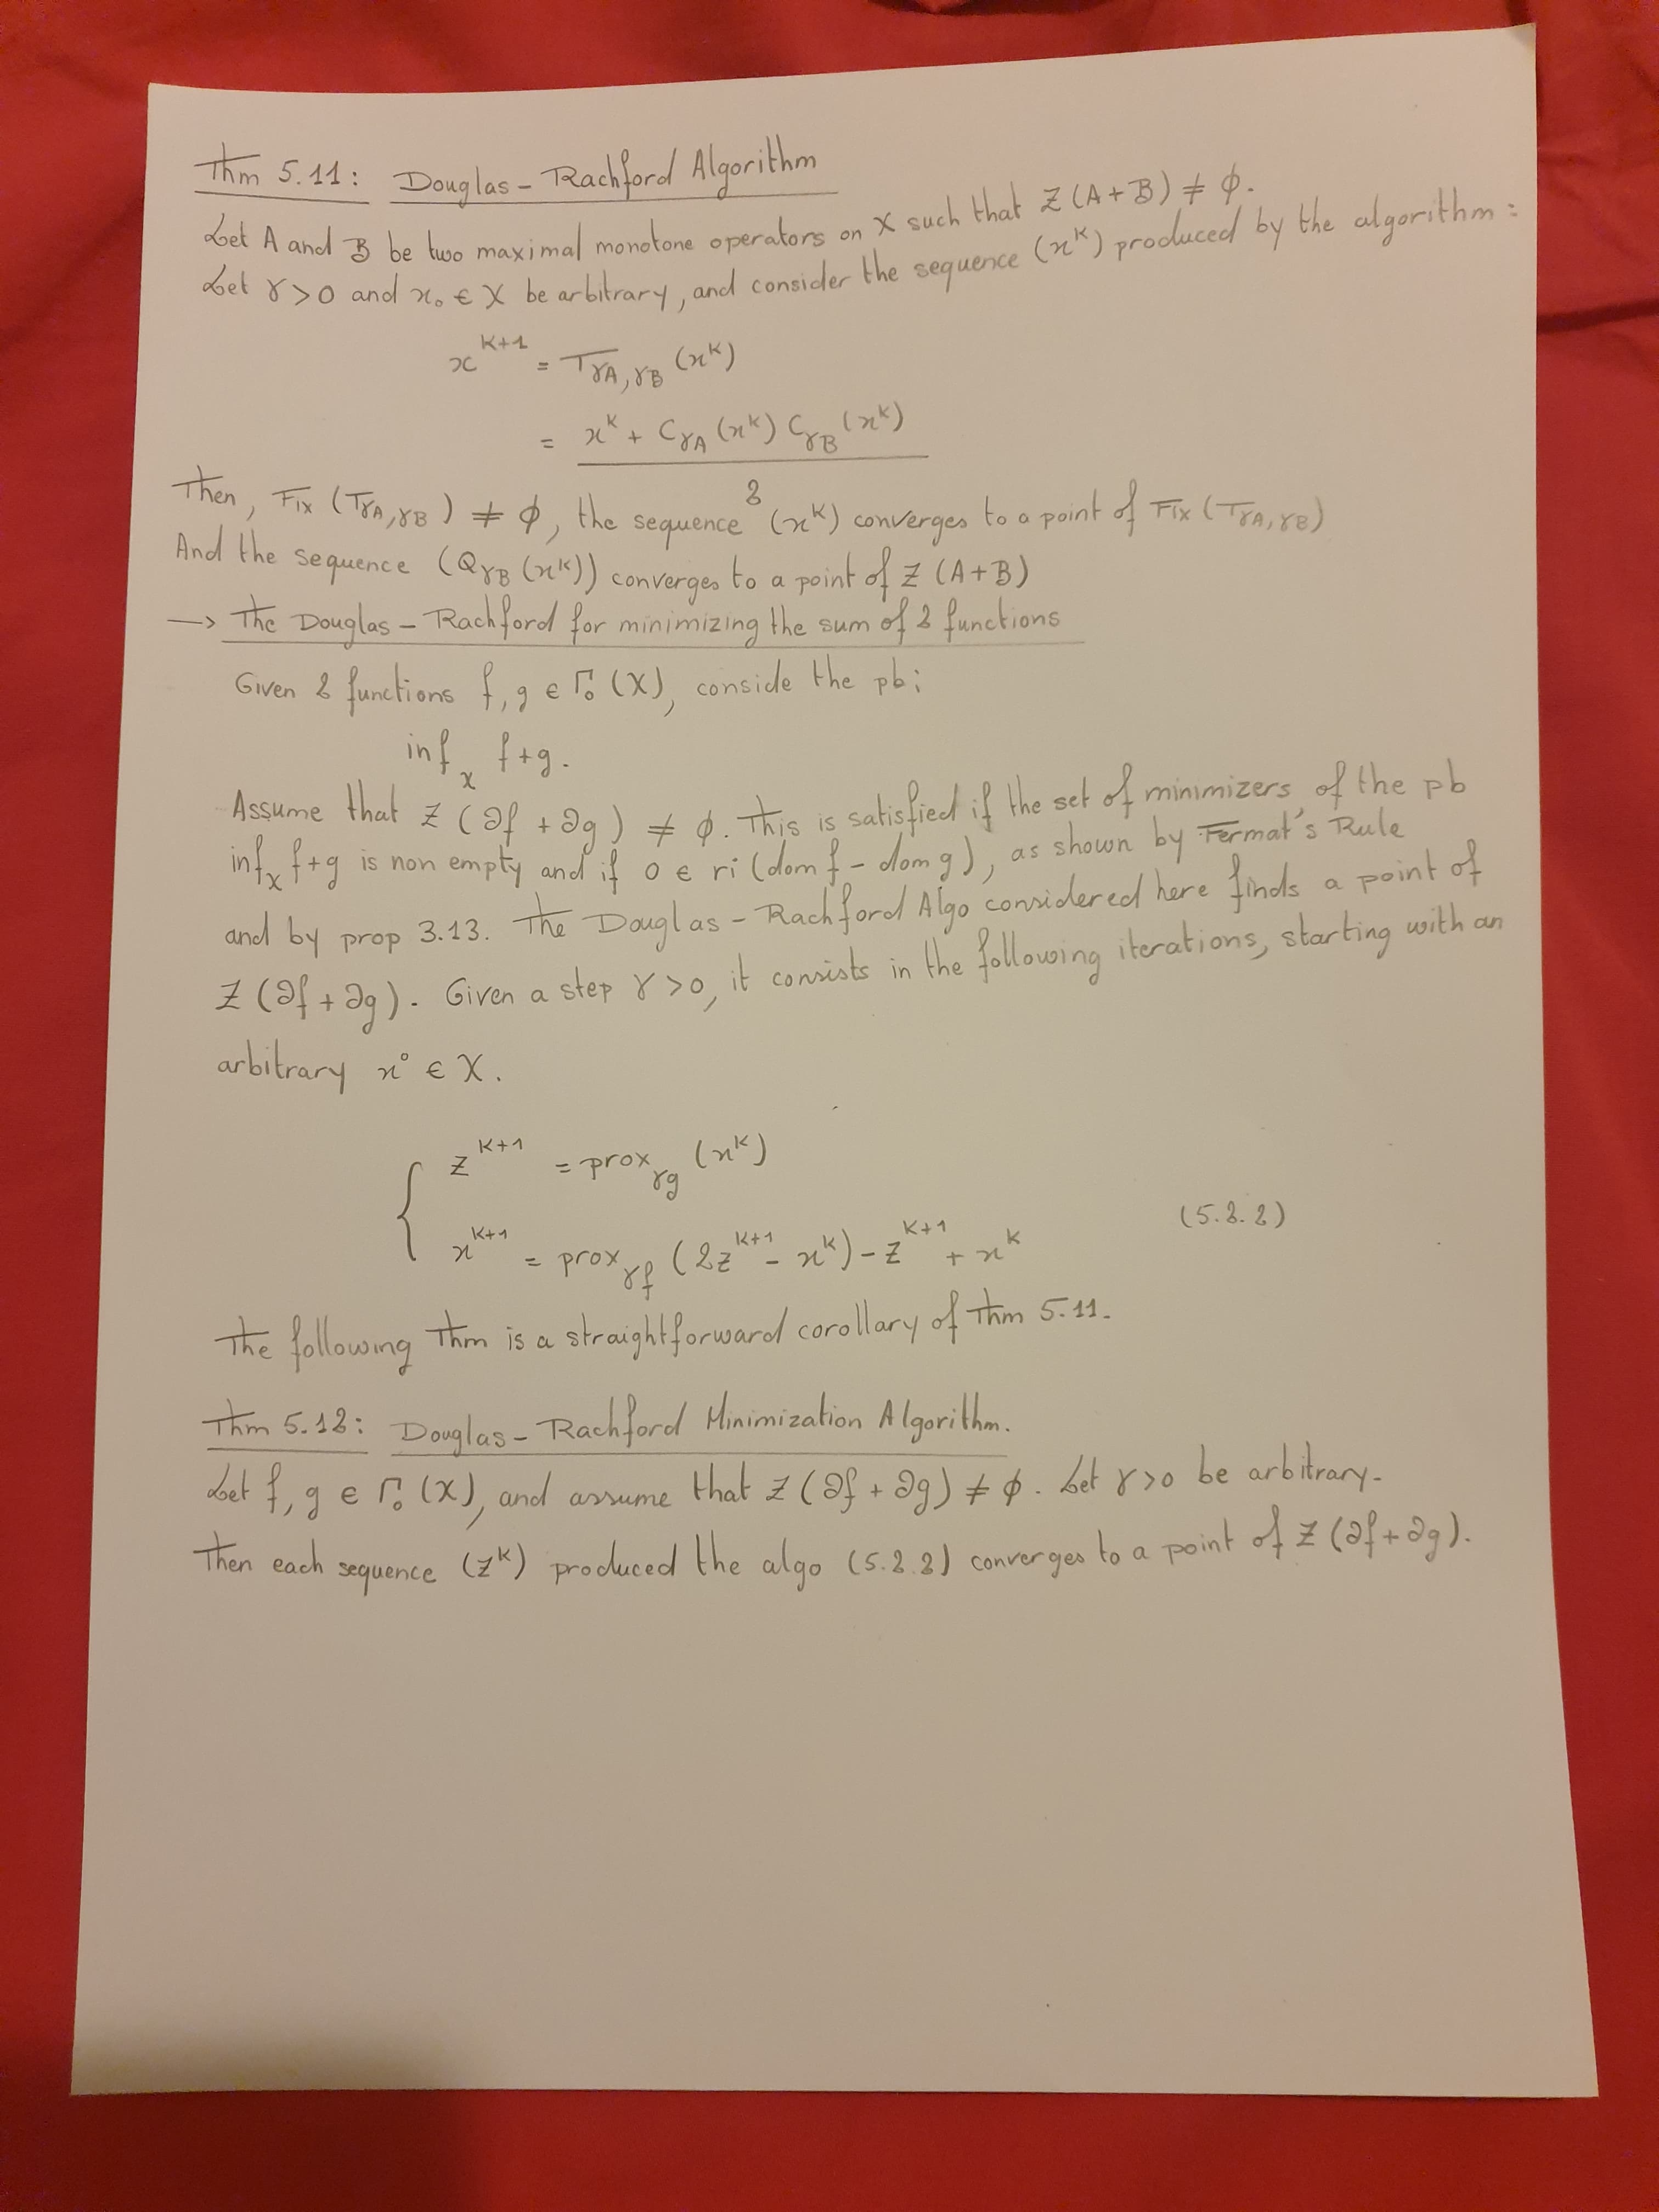 Thm 5.11: Douglas - Rachford Algorithm
Let A and B be two maximal monotone operators on X such that Z (A+B) ≠ ϕ.
Let γ > 0 and x₀ ∈ X be arbitrary, and consider the sequence (xᵏ) produced by the algorithm :
xᵏ⁺¹ = T_{γA, γB} (xᵏ)
= xᵏ + C_{γA} (xᵏ) C_{γB} (xᵏ)
2
Then, Fix (T_{γA, γB}) ≠ ϕ, the sequence (xᵏ) converges to a point of Fix (T_{γA, γB})
And the sequence (Q_{γB} (xᵏ)) converges to a point of Z (A+B)
→ The Douglas - Rachford for minimizing the sum of 2 functions
Given 2 functions f, g ∈ Γ₀ (X), conside the pb :
inf_X f+g.
Assume that Z (∂f + ∂g) ≠ ϕ. This is satisfied if the set of minimizers of the pb
inf_X f+g is non empty and if 0 ∈ ri (dom f - dom g), as shown by Fermat's Rule
and by prop 3.13. The Douglas - Rachford Algo considered here finds a point of
Z (∂f + ∂g). Given a step γ > 0, it consists in the following iterations, starting with an
arbitrary x⁰ ∈ X.
{ zᵏ⁺¹ = prox_{γg} (xᵏ)
xᵏ⁺¹ = prox_{γf} (2zᵏ⁺¹ - xᵏ) - zᵏ⁺¹ + xᵏ (5.2.2)
The following Thm is a straightforward corollary of Thm 5.11.
Thm 5.12: Douglas - Rachford Minimization Algorithm.
Let f, g ∈ Γ₀ (X), and assume that Z (∂f + ∂g) ≠ ϕ. Let γ > 0 be arbitrary.
Then each sequence (zᵏ) produced the algo (5.2.2) converges to a point of Z (∂f + ∂g).